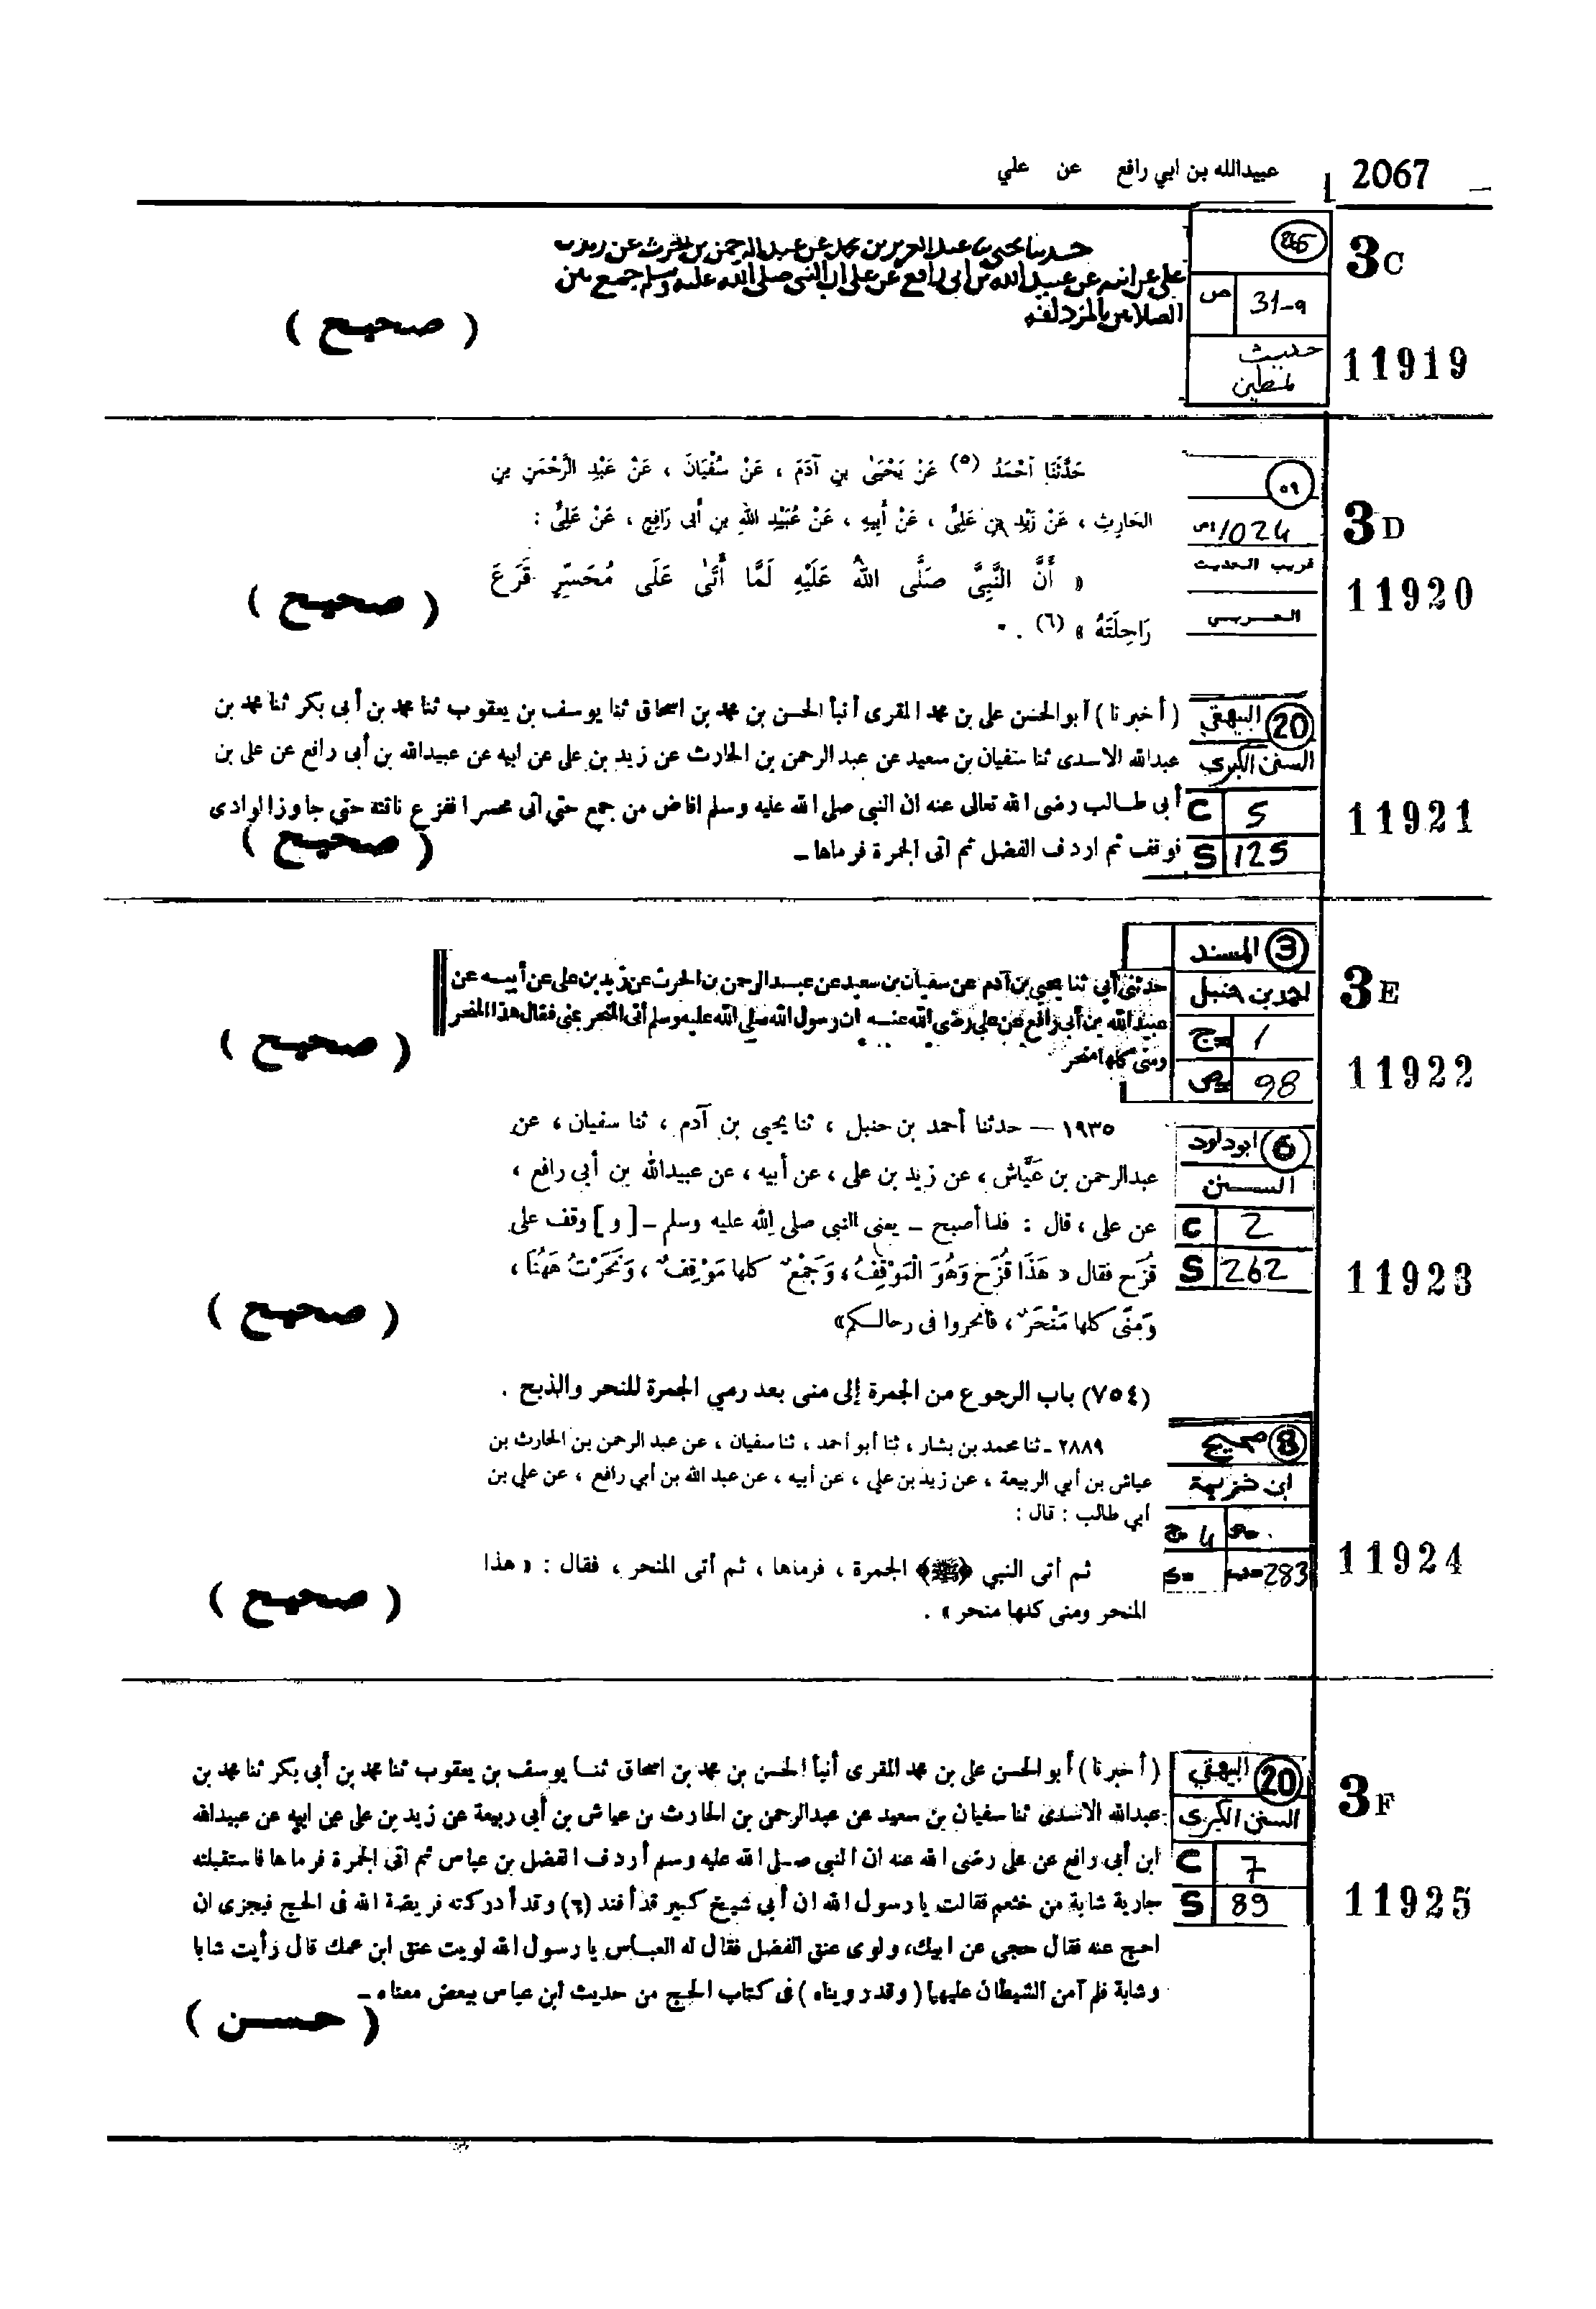 2067 عبيدالله بن ابي رافع عن علي
3C
46
ص 31-9
حديث
11919
حدثنا يحيى ثنا عبد العزيز بن محمد عن عبد الرحمن بن الحرث عن زيد بن
علي عن ابيه عن عبيد الله بن ابي رافع عن علي ان النبي صلى الله عليه وسلم جمع بين
الصلاتين بالمزدلفة
( صحيح )
3D
٥٩
ص 1024
غريب الحديث
الحربي
11920
حَدَّثَنَا أَحْمَدُ (٥) عَنْ يَحْيَىٰ بنِ آدَمَ ، عَنْ سُفْيَانَ ، عَنْ عَبْدِ الرَّحْمَنِ بنِ
الحَارِثِ ، عَنْ زَيْدِ بنِ عَلِيٍّ ، عَنْ أَبِيهِ ، عَنْ عُبَيْدِ اللهِ بنِ أَبى رَافِعٍ ، عَنْ عَلِيٍّ :
« أَنَّ النَّبِيَّ صَلَّى اللهُ عَلَيْهِ لَمَّا أَتَىٰ عَلَى مُحَسِّرٍ قَرَعَ
رَاحِلَتَهُ » (٦) .
( صحيح )
20 البيهقي
السنن الكبرى
C 5
S 125
11921
( أخبرنا ) أبو الحسن على بن محمد المقرى أنبأ الحسن بن محمد بن اسحاق ثنا يوسف بن يعقوب ثنا محمد بن أبى بكر ثنا محمد بن
عبدالله الاسدى ثنا سفيان بن سعيد عن عبد الرحمن بن الحارث عن زيد بن على عن ابيه عن عبيدالله بن أبى رافع عن على بن
أبى طالب رضى الله تعالى عنه ان النبى صلى الله عليه وسلم افاض من جمع حتى أتى محسرا فقزع ناقته حتى جاوز الوادى
فوقف ثم اردف الفضل ثم اتى الجمرة فرماها -
( صحيح )
3E
3 المسند
احمد بن حنبل
ج 1
ص 98
11922
حدثنى أبي ثنا يحيى بن آدم عن سفيان بن سعيد عن عبد الرحمن بن الحرث عن زيد بن على عن أبيه عن
عبيد الله بن أبى رافع عن على رضى الله عنه ان رسول الله صلى الله عليه وسلم أتى المنحر بمنى فقال هذا المنحر
ومنى كلها منحر
( صحيح )
6 ابوداود
السنن
C 2
S 262
11923
١٩٣٥ — حدثنا أحمد بن حنبل ، ثنا يحيى بن آدم ، ثنا سفيان ، عن
عبدالرحمن بن عَيَّاش ، عن زيد بن على ، عن أبيه ، عن عبيدالله بن أبي رافع ،
عن على ، قال : فلما أصبح - يعنى النبى صلى الله عليه وسلم - [ و ] وقف على
قُزَح فقال « هَذَا قُزَح وَهُوَ الْمَوْقِفُ ، وَجَمْعٌ كلها مَوْقِفٌ ، وَنَحَرْتُ هَهُنَا ،
وَمِنًى كلها مَنْحَرٌ ، فانحروا فى رحالكم»
( صحيح )
(٧٥٤) باب الرجوع من الجمرة إلى منى بعد رمي الجمرة للنحر والذبح .
8 صحيح
ابن خزيمة
ج 4
283
11924
٢٨٨٩ - ثنا محمد بن بشار ، ثنا أبو أحمد ، ثنا سفيان ، عن عبد الرحمن بن الحارث بن
عياش بن أبي الربيعة ، عن زيد بن علي ، عن أبيه ، عن عبد الله بن أبي رافع ، عن علي بن
أبي طالب : قال :
ثم أتى النبي ﴿ﷺ﴾ الجمرة ، فرماها ، ثم أتى المنحر ، فقال : « هذا
المنحر ومنى كلها منحر » .
( صحيح )
3F
20 البيهقي
السنن الكبرى
C 7
S 89
11925
( أخبرنا ) أبو الحسن على بن محمد المقرى أنبأ الحسن بن محمد بن اسحاق ثنا يوسف بن يعقوب ثنا محمد بن أبى بكر ثنا محمد بن
عبدالله الاسدى ثنا سفيان بن سعيد عن عبدالرحمن بن الحارث بن عياش بن أبى ربيعة عن زيد بن على عن ابيه عن عبيدالله
ابن أبى رافع عن على رضى الله عنه ان النبى صلى الله عليه وسلم أردف الفضل بن عباس ثم اتى الجمرة فرماها فاستقبلته
جارية شابة من خثعم فقالت يا رسول الله ان أبى شيخ كبير قد أفند (٦) وقد أدركته فريضة الله فى الحج فيجزى ان
احج عنه فقال حجى عن ابيك، ولوى عنق الفضل فقال له العباس يا رسول الله لويت عنق ابن عمك قال رأيت شابا
وشابة فلم آمن الشيطان عليهما ( وقد رويناه ) فى كتاب الحج من حديث ابن عباس ببعض معناه -
( حسن )